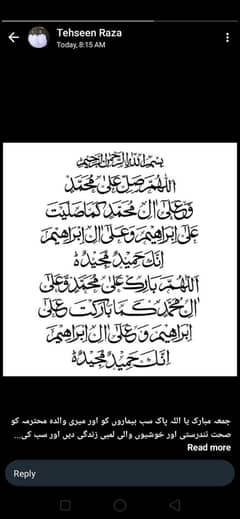 Tehseen Raza
Today, 8:15 AM
بسم الله الرحمن الرحيم
اللهم صل على محمد
وعلى ال محمد كما صليت
على ابراهيم وعلى ال ابراهيم
انك حميد مجيد
اللهم بارك على محمد وعلى
ال محمد كما باركت على
ابراهيم وعلى ال ابراهيم
انك حميد مجيد
جمعہ مبارک یا اللہ پاک سب بیماروں کو اور میری والدہ محترمہ کو
صحت تندرستی اور خوشیوں والی لمبی زندگی دیں اور سب کی...
Read more
Reply